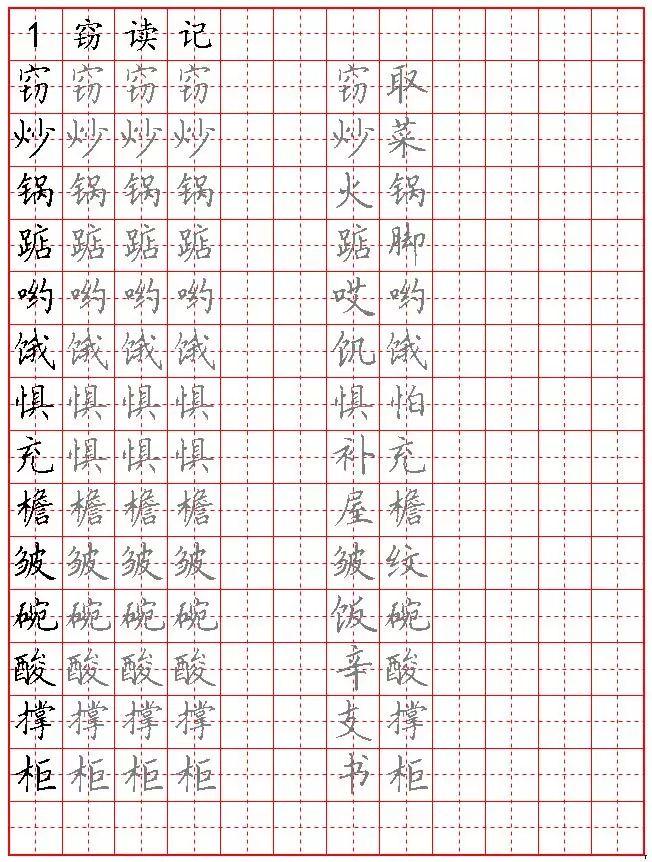 1 窃读记
窃窃窃窃 窃取
炒炒炒炒 炒菜
锅锅锅锅 火锅
踮踮踮踮 踮脚
哟哟哟哟 哎哟
饿饿饿饿 饥饿
惧惧惧惧 惧怕
充惧惧惧 补充
檐檐檐檐 屋檐
皱皱皱皱 皱纹
碗碗碗碗 饭碗
酸酸酸酸 辛酸
撑撑撑撑 支撑
柜柜柜柜 书柜